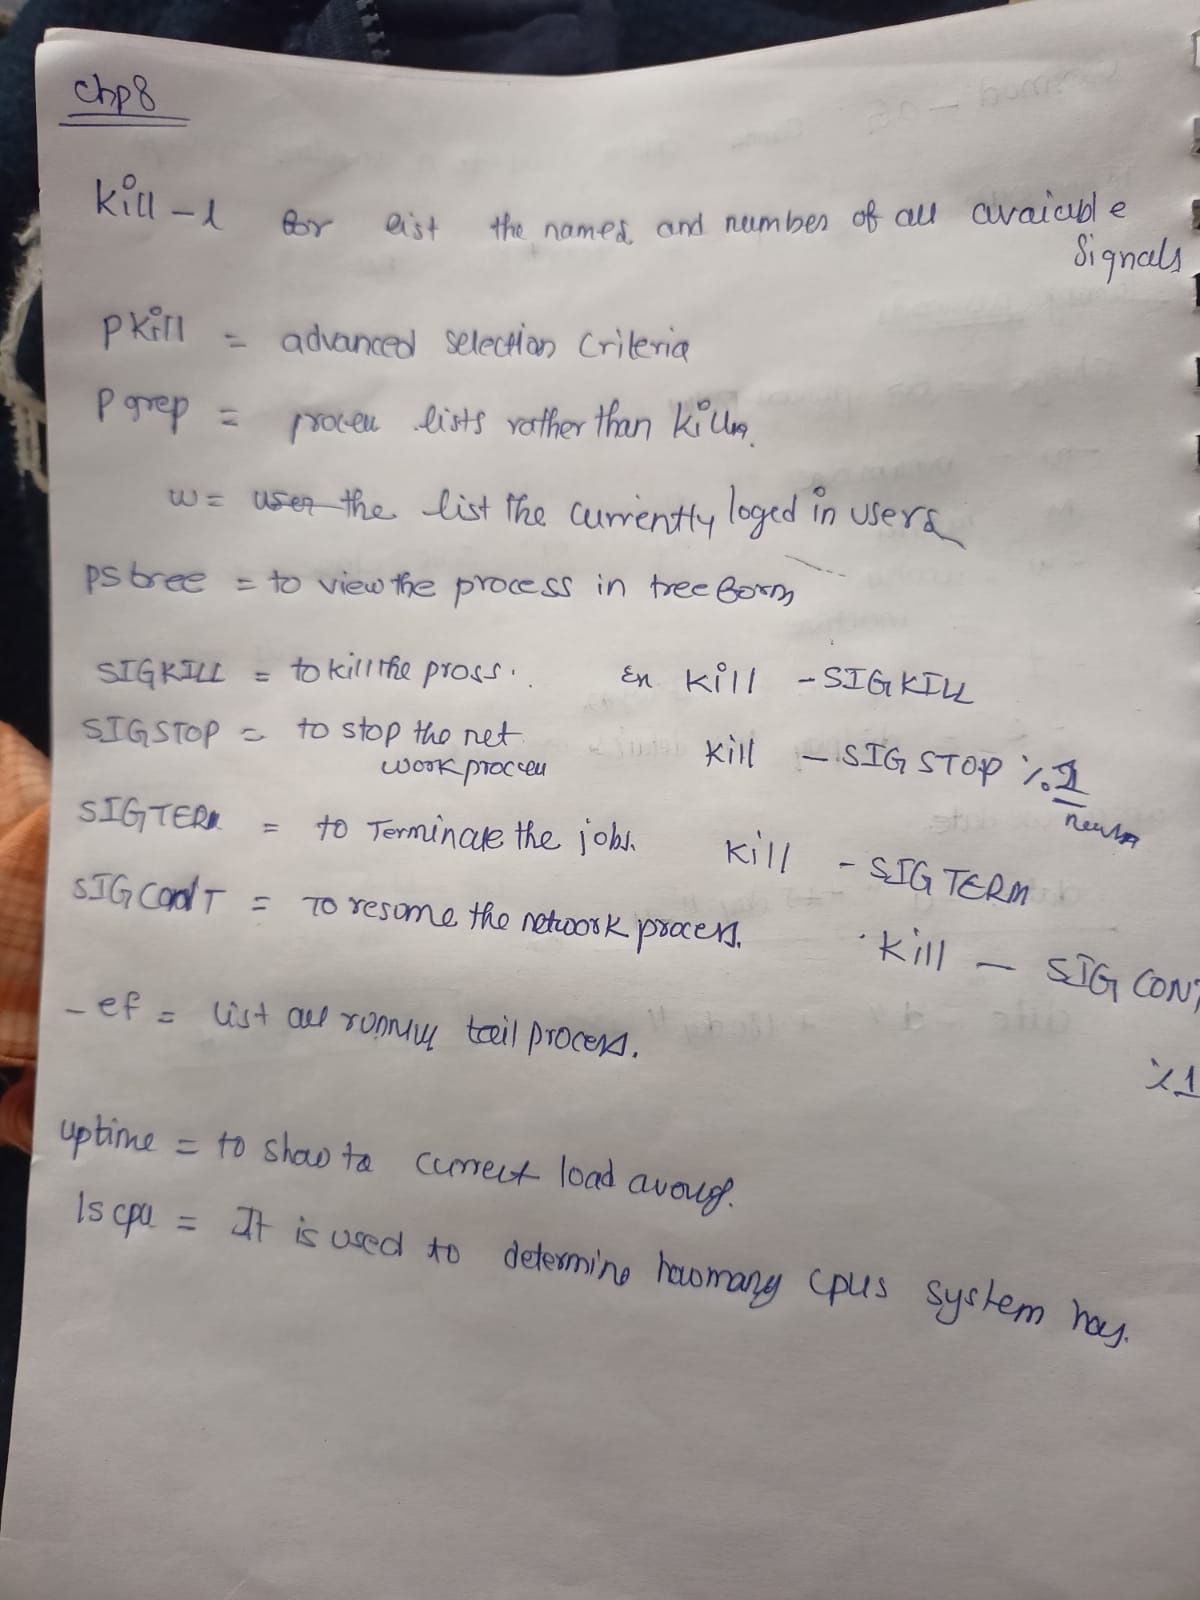 chp8
kill -l for list the names and number of all avaiable
Signals
pkill = advanced selection criteria
Pgrep = process lists rather than killing.
w = user the list the currently loged in users
pstree = to view the process in tree form
SIGKILL = to kill the pross. Ex kill -SIGKILL
SIGSTOP = to stop the net kill - SIGSTOP %1
work process
SIGTERM = to Terminate the jobs. kill - SIGTERM
SIGCONT = To resome the network process. kill - SIG CONT
%1
-ef = list all running tail process.
uptime = to show ta current load averag.
lscpu = It is used to determine howmany cpus system has.